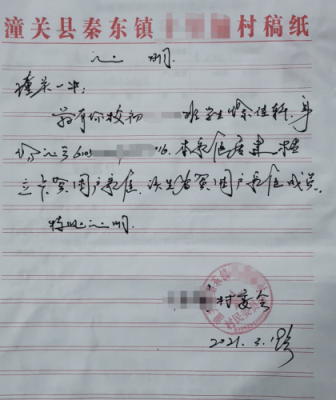 潼关县秦东镇 村稿纸
证 明
潼关一中:
兹有你校初 班学生徐佳轩,身
份证号610 16.本家庭居建档
立卡贫困户家庭,该生为贫困户家庭成员.
特此证明.
村委会
2021.3.1